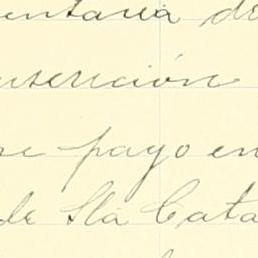 entaria de
inserición
se payo en
de Sta Cata